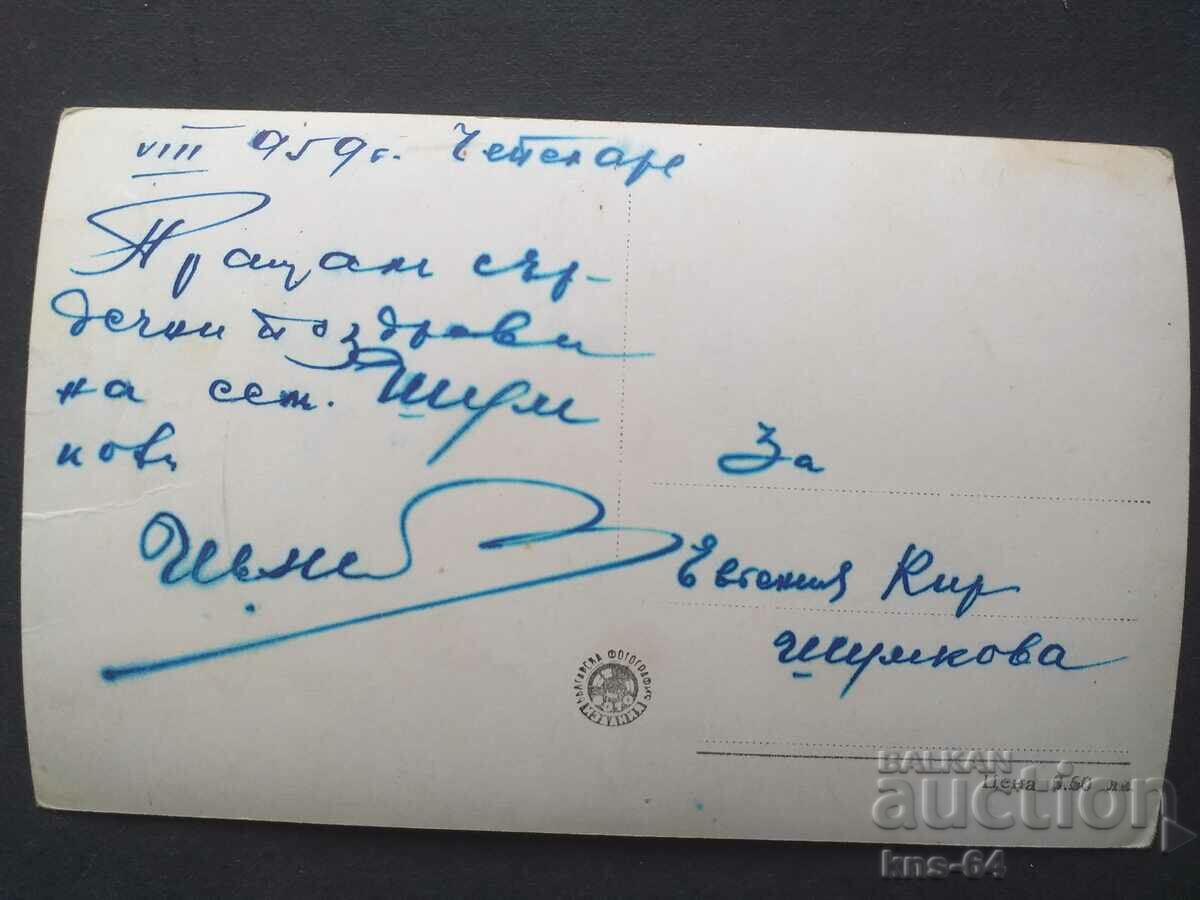 VIII 959 г. Чепеларе
Пращам сър-
дечни поздрави
на сем. Шум
кови
За
Евгения Кир
Шумкова
БЪЛГАРСКА ФОТОГРАФИЯ
Цена 3.50 лв.
BALKAN
auction
kns-64